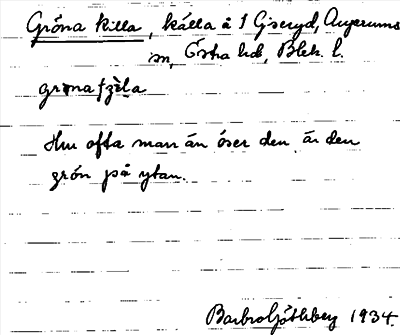 Gröna Killa, källa å 1 Gseryd, Augerums
sn, Östra hd, Blek. l.
grǫna ʃzèla
Hur ofta man än öser den, är den
grön på ytan.
Barbro Götheberg 1934.